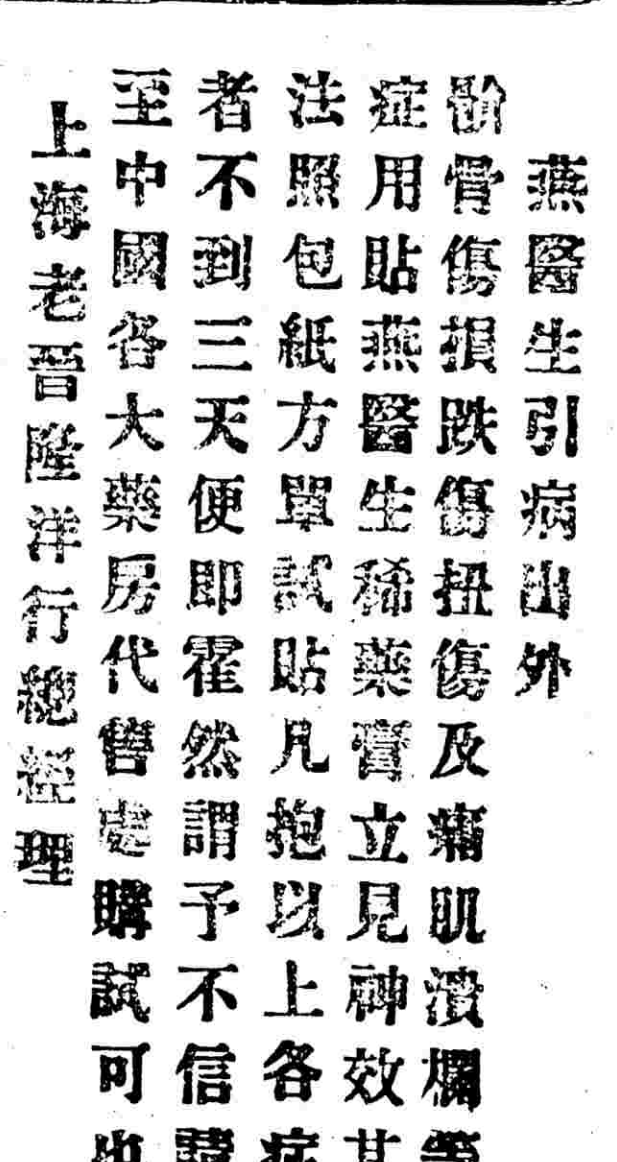 燕醫生引病出外
骨傷損跌傷扭傷及癰肌潰欄等
症用貼燕醫生稀藥膏立見神效其
法照包紙方單試貼凡抱以上各症
者不到三天便即霍然謂予不信請
至中國各大藥房代售處購試可也
上海老晉隆洋行總經理